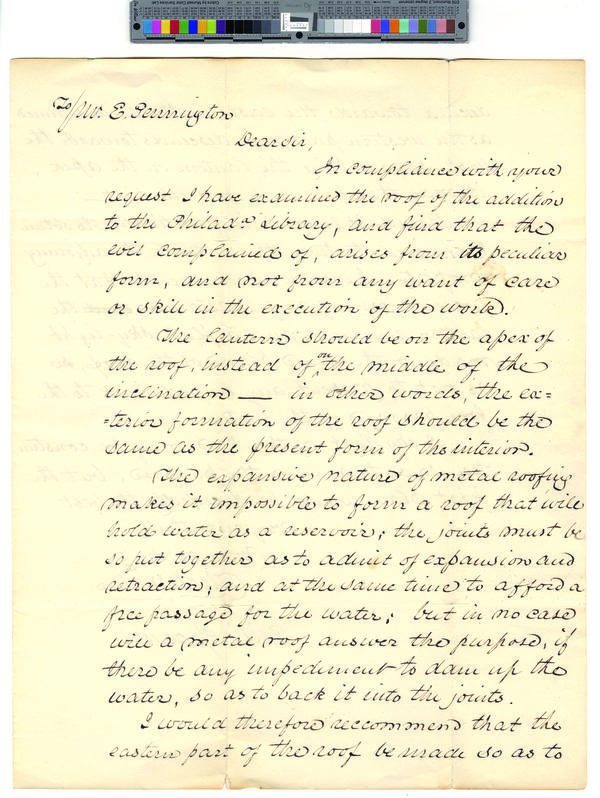 To/Mr. E. Pennington
Dear sir,
In compliance with your
request I have examined the roof of the addition
to the Philada. Library, and find that the
evil complained of, arises from its peculiar
form, and not from any want of care
or skill in the execution of the work.
The lantern should be on the apex of
the roof, instead of on the middle of the
inclination — in other words, the ex-
=terior formation of the roof should be the
same as the present form of the interior.
The expansive nature of metal roofing
makes it impossible to form a roof that will
hold water as a reservoir; the joints must be
so put together as to admit of expansion and
retraction; and at the same time to afford a
free passage for the water; but in no case
will a metal roof answer the purpose, if
there be any impediment to dam up the
water, so as to back it into the joints.
I would therefore reccommend that the
eastern part of the roof be made so as to